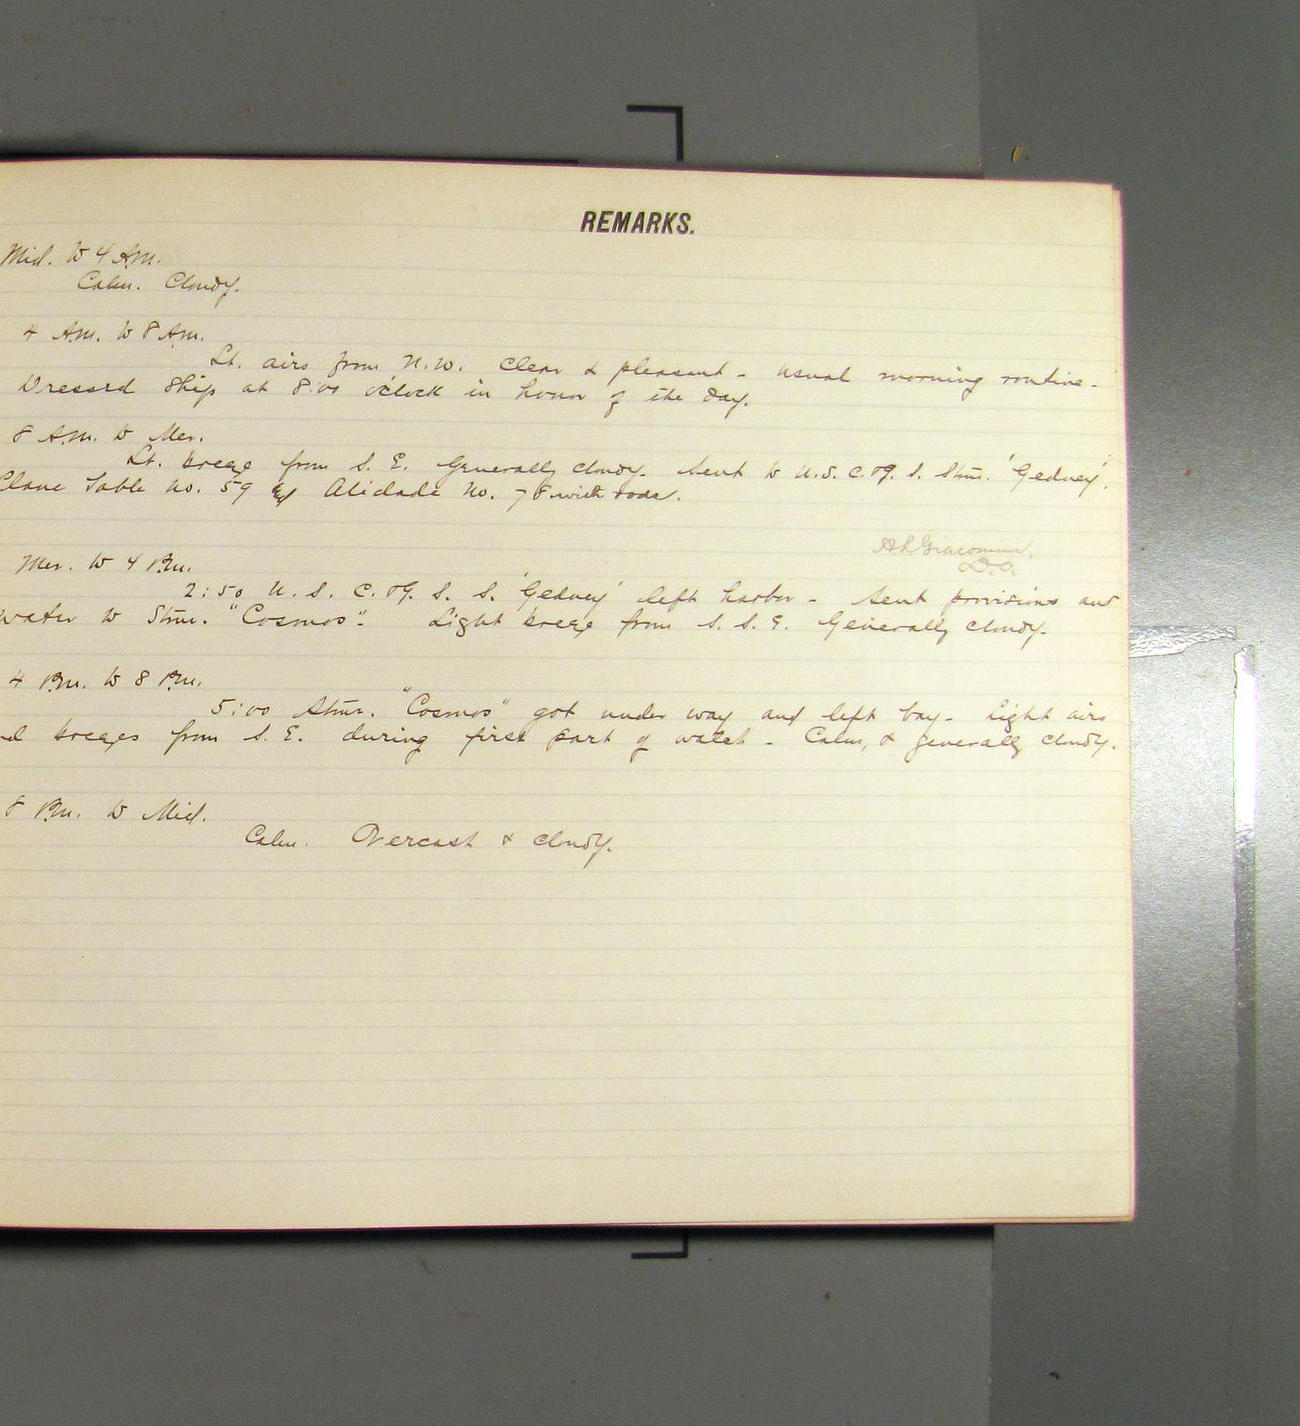 REMARKS.
Mid. to 4 A.M.
Calm. Cloudy.
4 A.M. to 8 A.M.
Lt. airs from N.W. Clear & pleasant - usual morning routine -
Dressed Ship at 8:00 o'clock in honor of the day.
8 A.M. to Mer.
Lt. breeze from S. E. Generally cloudy. Sent to U.S.C. & G. S. Stmr. 'Gedney'
Plane Table No. 59 & Alidade No. 78 with rods.
Giacomini,
D.O.
Mer. to 4 P.M.
2:50 U. S. C. & G. S. S. 'Gedney' left harbor - Sent provisions and
water to Stmr. "Cosmos". Light breeze from S. S. E. Generally cloudy.
4 P.M. to 8 P.M.
5:00 Stmr. "Cosmos" got under way and left bay - Light airs
nd breezes from S. E. during first part of watch - Calm, & generally cloudy.
8 P.M. to Mid.
Calm. Overcast & cloudy.